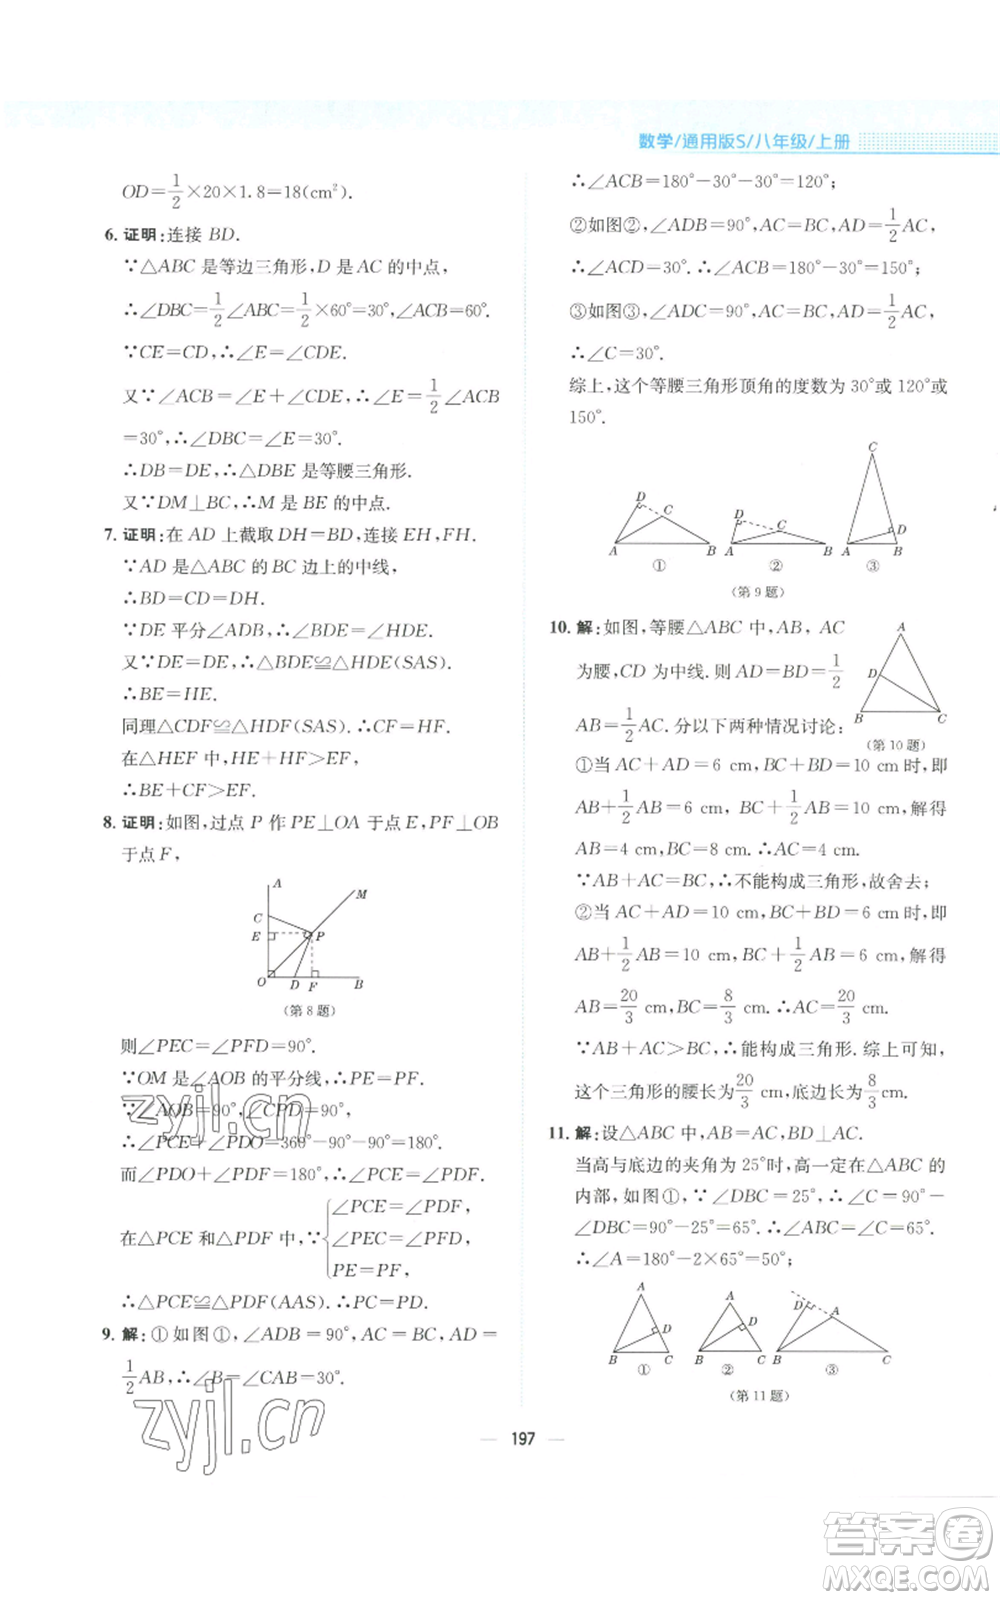 数学/通用版S/八年级/上册
OD=1/2×20×1.8=18(cm²).
6. 证明:连接 BD.
∵△ABC 是等边三角形,D 是 AC 的中点,
∴∠DBC=1/2∠ABC=1/2×60°=30°,∠ACB=60°.
∵CE=CD,∴∠E=∠CDE.
又∵∠ACB=∠E+∠CDE,∴∠E=1/2∠ACB
=30°,∴∠DBC=∠E=30°.
∴DB=DE,∴△DBE 是等腰三角形.
又∵DM⊥BC,∴M 是 BE 的中点.
7. 证明:在 AD 上截取 DH=BD,连接 EH,FH.
∵AD 是△ABC 的 BC 边上的中线,
∴BD=CD=DH.
∵DE 平分∠ADB,∴∠BDE=∠HDE.
又∵DE=DE,∴△BDE≌△HDE(SAS).
∴BE=HE.
同理△CDF≌△HDF(SAS).∴CF=HF.
在△HEF 中,HE+HF>EF.
∴BE+CF>EF.
8. 证明:如图,过点 P 作 PE⊥OA 于点 E,PF⊥OB
于点 F,
A
M
C
E
P
O
D
F
B
(第 8 题)
则∠PEC=∠PFD=90°.
∵OM 是∠AOB 的平分线,∴PE=PF.
∵∠AOB=90°,∠CPD=90°,
∴∠PCE+∠PDO=360°-90°-90°=180°.
而∠PDO+∠PDF=180°,∴∠PCE=∠PDF.
在△PCE 和△PDF 中,∵
∠PCE=∠PDF,
∠PEC=∠PFD,
PE=PF,
∴△PCE≌△PDF(AAS).∴PC=PD.
9. 解:①如图①,∠ADB=90°,AC=BC,AD=
1/2AB,∴∠B=∠CAB=30°.
∴∠ACB=180°-30°-30°=120°;
②如图②,∠ADB=90°,AC=BC,AD=1/2AC,
∴∠ACD=30°.∴∠ACB=180°-30°=150°;
③如图③,∠ADC=90°,AC=BC,AD=1/2AC,
∴∠C=30°.
综上,这个等腰三角形顶角的度数为 30°或 120°或
150°.
D
C
A
B
①
D
C
A
B
②
C
D
A
B
③
(第 9 题)
10. 解:如图,等腰△ABC 中,AB, AC
为腰,CD 为中线.则 AD=BD=1/2
AB=1/2AC.分以下两种情况讨论:
A
D
B
C
(第 10 题)
①当 AC+AD=6 cm,BC+BD=10 cm 时,即
AB+1/2AB=6 cm, BC+1/2AB=10 cm,解得
AB=4 cm,BC=8 cm.∴AC=4 cm.
∵AB+AC=BC,∴不能构成三角形,故舍去;
②当 AC+AD=10 cm,BC+BD=6 cm 时,即
AB+1/2AB=10 cm,BC+1/2AB=6 cm,解得
AB=20/3 cm,BC=8/3 cm.∴AC=20/3 cm.
∵AB+AC>BC,∴能构成三角形.综上可知,
这个三角形的腰长为20/3 cm,底边长为8/3 cm.
11. 解:设△ABC 中,AB=AC,BD⊥AC.
当高与底边的夹角为 25°时,高一定在△ABC 的
内部,如图①,∵∠DBC=25°,∴∠C=90°-
∠DBC=90°-25°=65°.∴∠ABC=∠C=65°.
∴∠A=180°-2×65°=50°;
A
D
B
C
①
A
D
B
C
②
D
A
B
C
③
(第 11 题)
197
zyjl.cn
zyjl.cn
答案卷
MXQE.COM